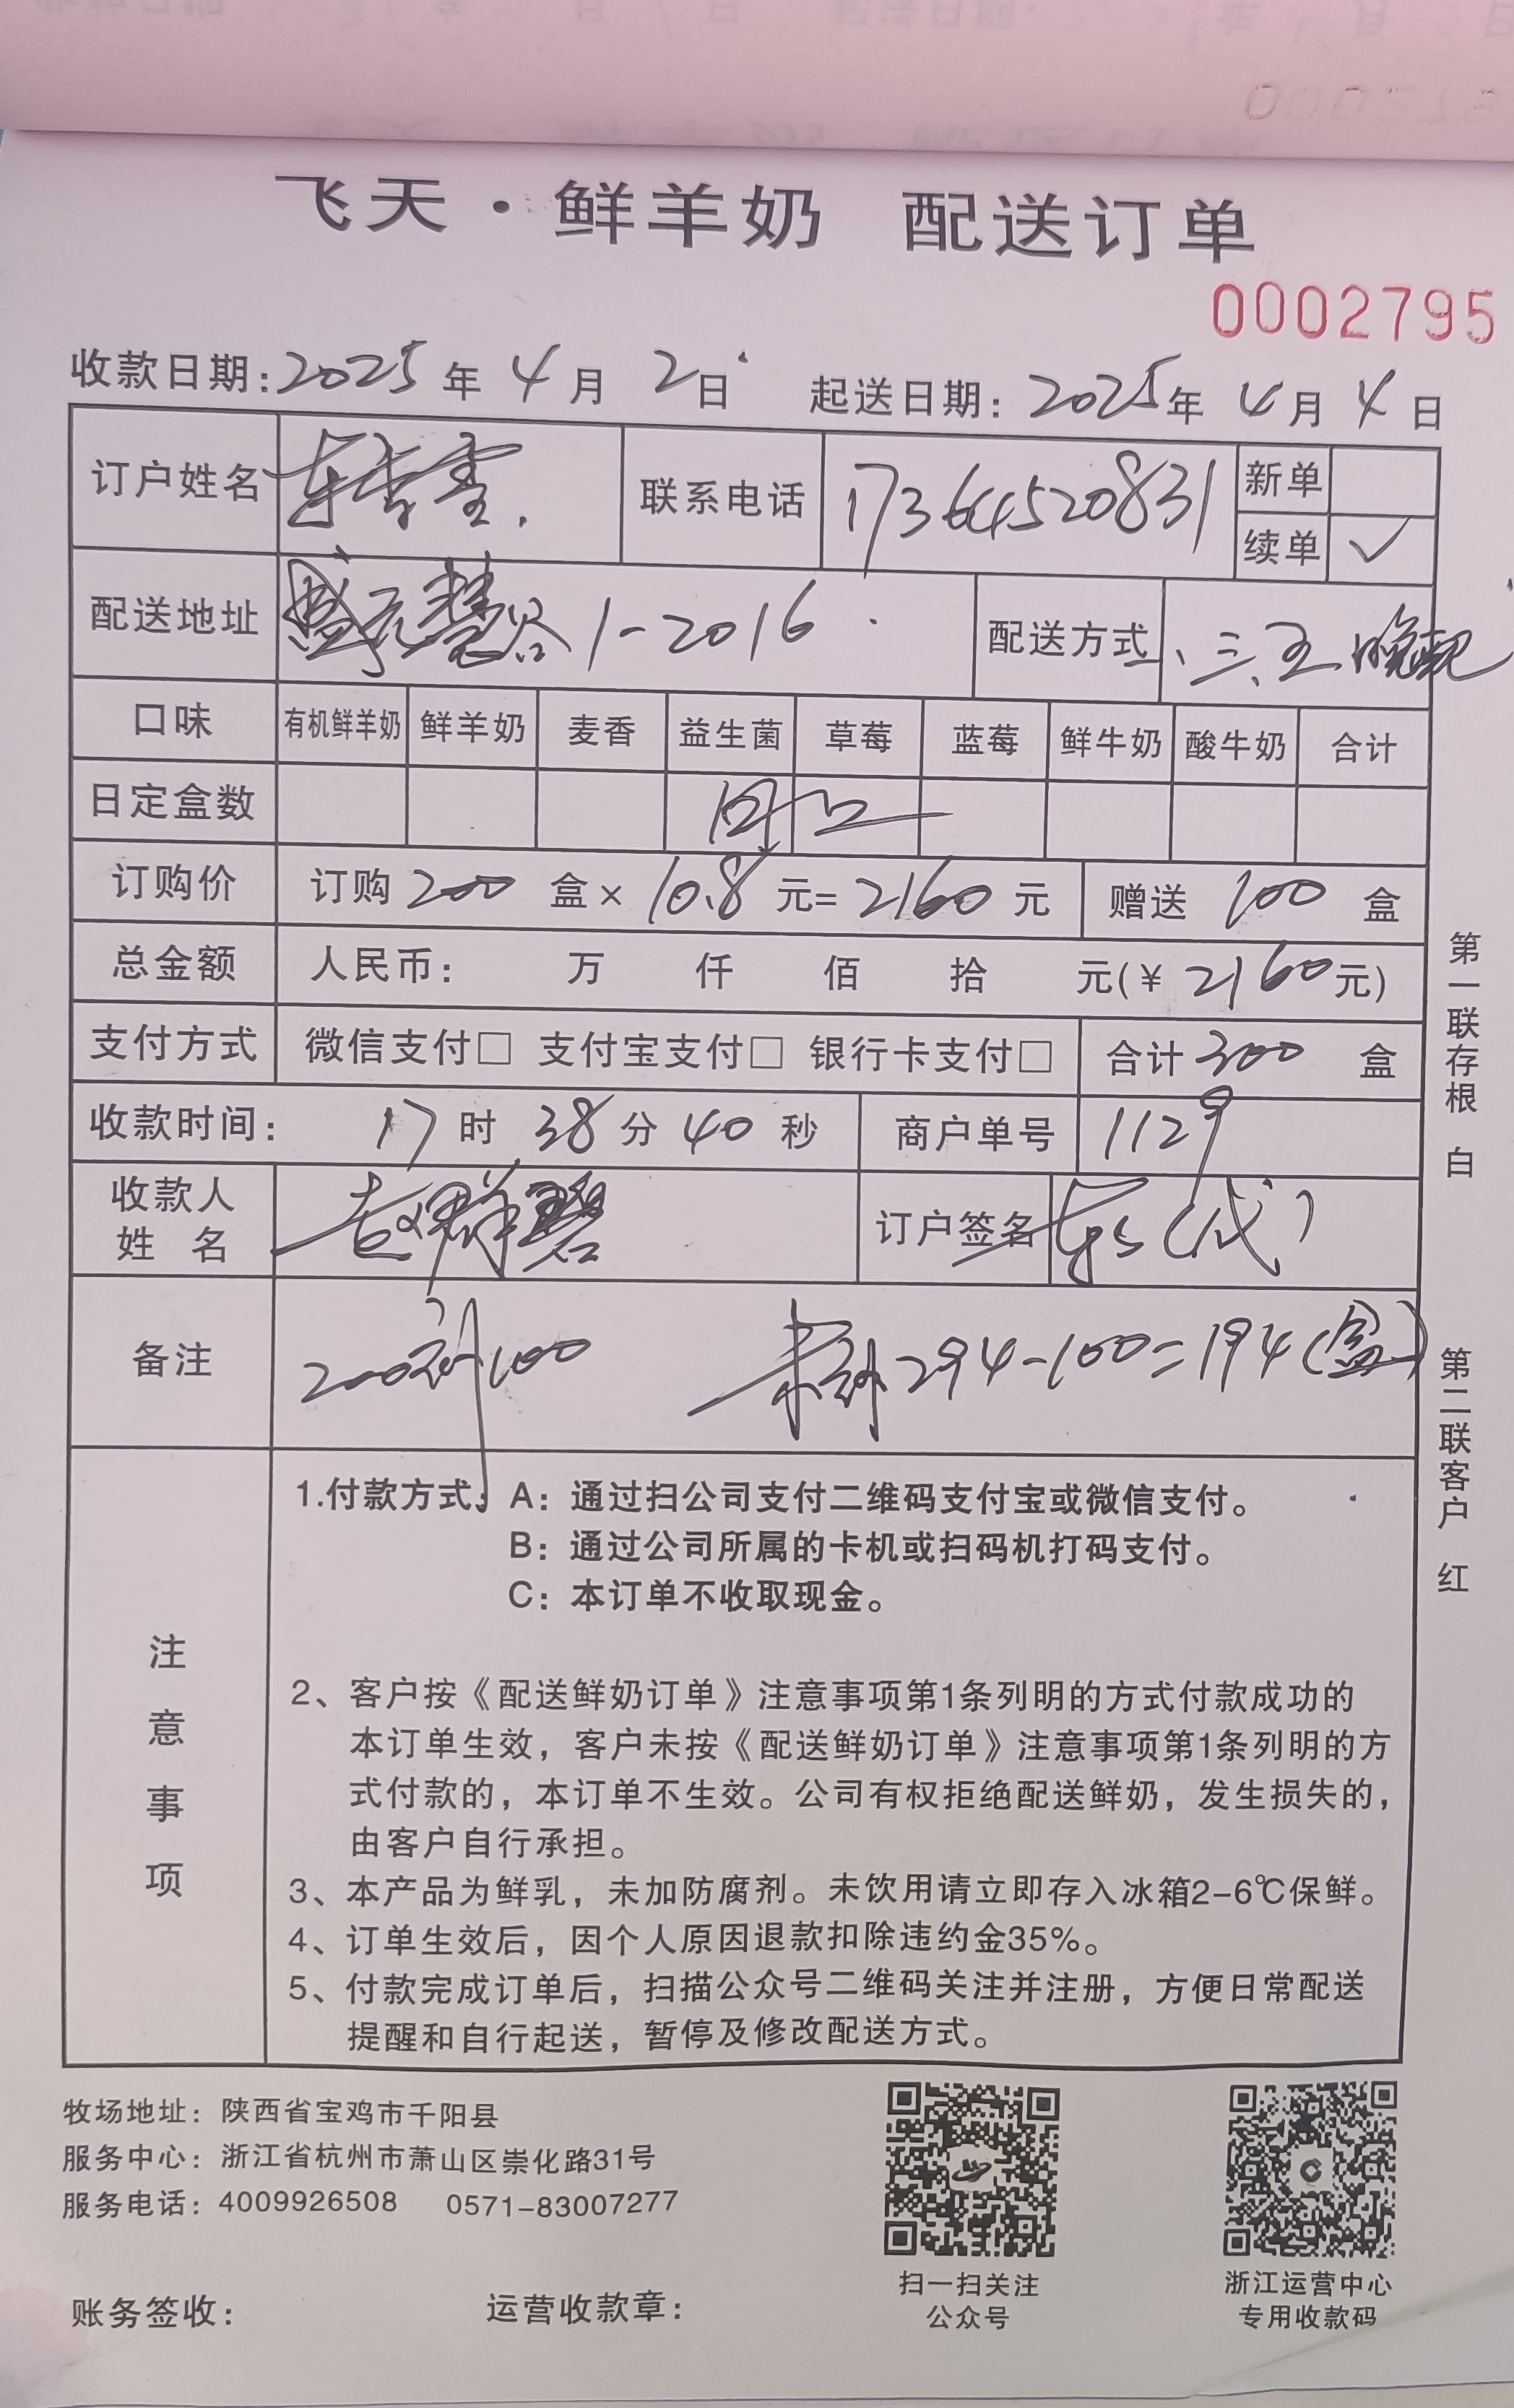 飞天·鲜羊奶 配送订单
0002795
收款日期:2025年4月2日 起送日期:2025年4月4日
订户姓名 联系电话 17364520831 新单
续单 ✓
配送地址 盛元慧谷1-2016 配送方式 一、三、五晚配
口味 有机鲜羊奶 鲜羊奶 麦香 益生菌 草莓 蓝莓 鲜牛奶 酸牛奶 合计
日定盒数
订购价 订购 200 盒× 10.8 元= 2160 元 赠送 100 盒
总金额 人民币: 万 仟 佰 拾 元(¥ 2160元)
支付方式 微信支付□ 支付宝支付□ 银行卡支付□ 合计 300 盒
收款时间: 17时 38分 40秒 商户单号 1129
收款人姓名 赵群碧 订户签名 (代)
备注 200送100 294-100=194(盒)
注意事项
1.付款方式: A:通过扫公司支付二维码支付宝或微信支付。
B:通过公司所属的卡机或扫码机打码支付。
C:本订单不收取现金。
2、客户按《配送鲜奶订单》注意事项第1条列明的方式付款成功的
本订单生效,客户未按《配送鲜奶订单》注意事项第1条列明的方
式付款的,本订单不生效。公司有权拒绝配送鲜奶,发生损失的,
由客户自行承担。
3、本产品为鲜乳,未加防腐剂。未饮用请立即存入冰箱2-6℃保鲜。
4、订单生效后,因个人原因退款扣除违约金35%。
5、付款完成订单后,扫描公众号二维码关注并注册,方便日常配送
提醒和自行起送,暂停及修改配送方式。
第一联存根 白
第二联客户 红
牧场地址:陕西省宝鸡市千阳县
服务中心:浙江省杭州市萧山区崇化路31号
服务电话:4009926508 0571-83007277
扫一扫关注
公众号
浙江运营中心
专用收款码
账务签收: 运营收款章: